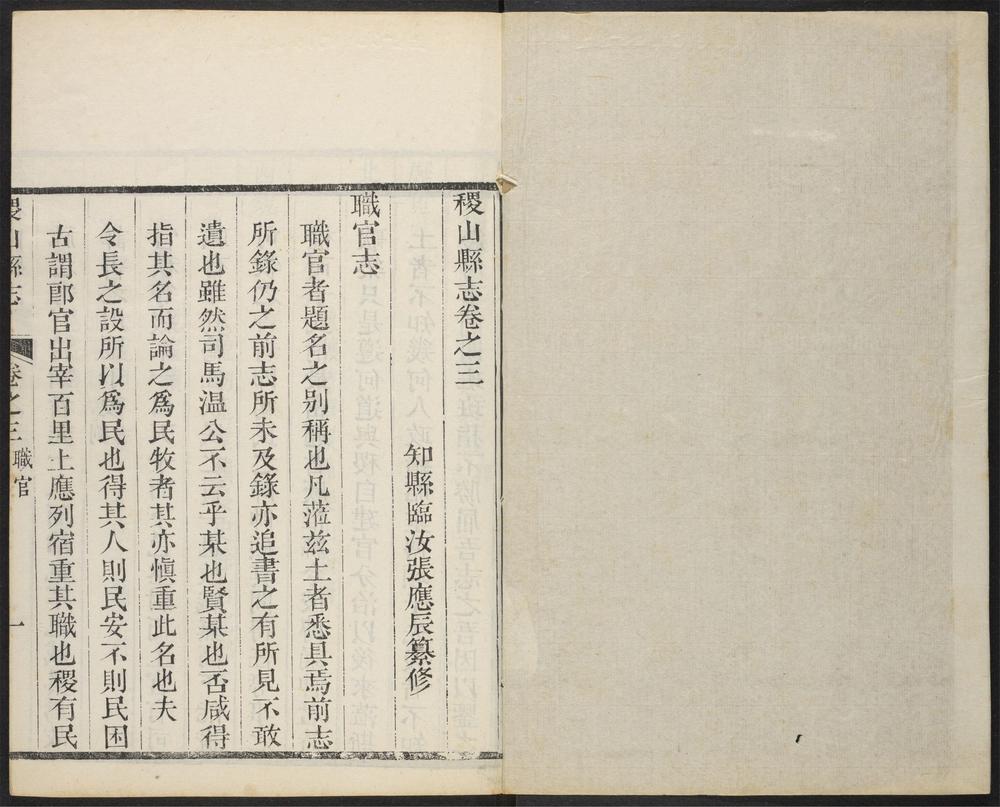 稷山縣志卷之三
知縣臨汝張應辰纂修
職官志
職官者題名之别稱也凡蒞兹土者悉具焉前志
所錄仍之前志所未及錄亦追書之有所見不敢
遺也雖然司馬温公不云乎某也賢某也否咸得
指其名而論之爲民牧者其亦愼重此名也夫
令長之設所以爲民也得其人則民安不則民困
古謂郎官出宰百里上應列宿重其職也稷有民
稷山縣志 卷之三 職官 一